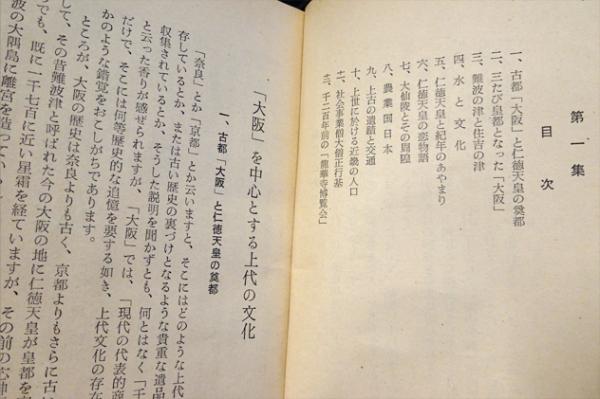 第一集
目次
一、古都「大阪」と仁徳天皇の奠都
二、三たび皇都となった「大阪」
三、難波の津と住吉の津
四、水と文化
五、仁徳天皇と紀年のあやまり
六、仁徳天皇の恋物語
七、大仙陵とその周隍
八、農業国日本
九、上古の道路と交通
十、上世に於ける近畿の人口
十一、社会事業僧大僧正行基
十二、千二百年前の「龍華寺博覧会」
「大阪」を中心とする上代の文化
一、古都「大阪」と仁徳天皇の奠都
「奈良」とか「京都」とか云いますと、そこにはどのような上代
存しているとか、または古い歴史の裏づけとなるような貴重な遺品
収集されているとか、そうした説明を聞かずとも、何とはなく「千
と云った香りが感ぜられますが、「大阪」では、「現代の代表的商
だけで、そこには何等歴史的な追憶を要する如き、上代文化の存在
かのような錯覚をおこしがちであります。
ところが、大阪の歴史は奈良よりも古く、京都よりもさらに古い
して、その昔難波津と呼ばれた今の大阪の地に仁徳天皇が皇都を
らでも、既に一千七百に近い星霜を経ていますが、その前の応神
波の大隅島に離宮を造って